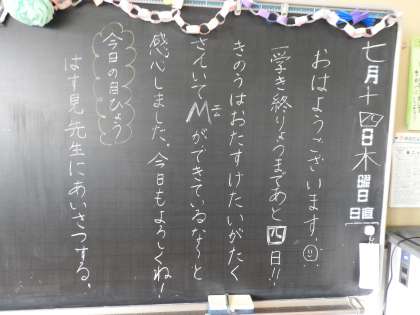 七月十四日木曜日
日直
おはようございます。
一学き終りょうまであと四日!!
きのうはおたすけたいがたく
さんいてMEができているな〜と
感心しました。今日もよろしくね!
今日の目ひょう
はす見先生にあいさつする。